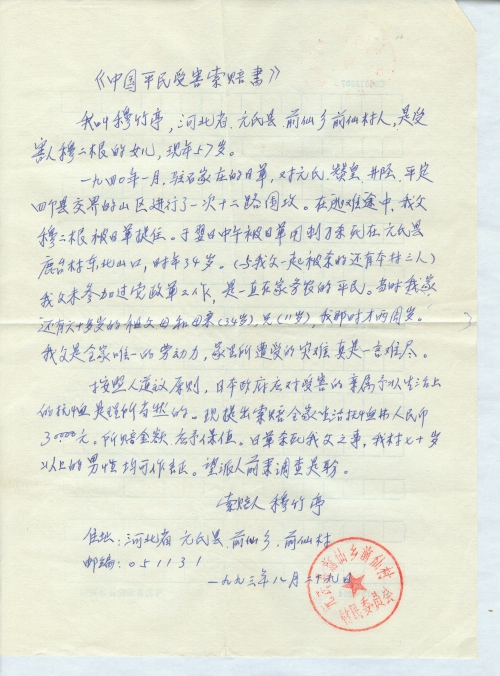 《中国平民受害索赔书》
我叫穆竹亭，河北省、元氏县、前仙乡前仙村人，是受
害人穆二根的女儿，现年57岁。
一九四0年一月，驻石家庄的日军，对元氏、赞皇、井陉、平定
四个县交界的山区进行了一次十二路围攻。在逃难途中，我父
穆二根被日军捉住。于翌日中午被日军用刺刀杀死在元氏县
鹿台村东北山口，时年34岁。（与我父一起被杀的还有本村三人）
我父未参加过党政军工作，是一直在家务农的平民。当时我家
还有六十多岁的祖父母和母亲（34岁），兄（11岁），我那时才两周岁。
我父是全家唯一的劳动力，家当所遭受的灾难真是一言难尽。
按照人道主义原则，日本政府应对受害的亲属予以生活上
的抚恤是理所当然的。现提出索赔全家生活抚恤费人民币
30000元。所赔金额应予保值。日军杀死我父之事，我村七十岁
以上的男性均可作证。望派人前来调查是盼。
索赔人 穆竹亭
住址：河北省元氏县、前仙乡、前仙村
邮编：051131
一九九三年八月二十九日
元氏县前仙乡前仙村
村民委员会